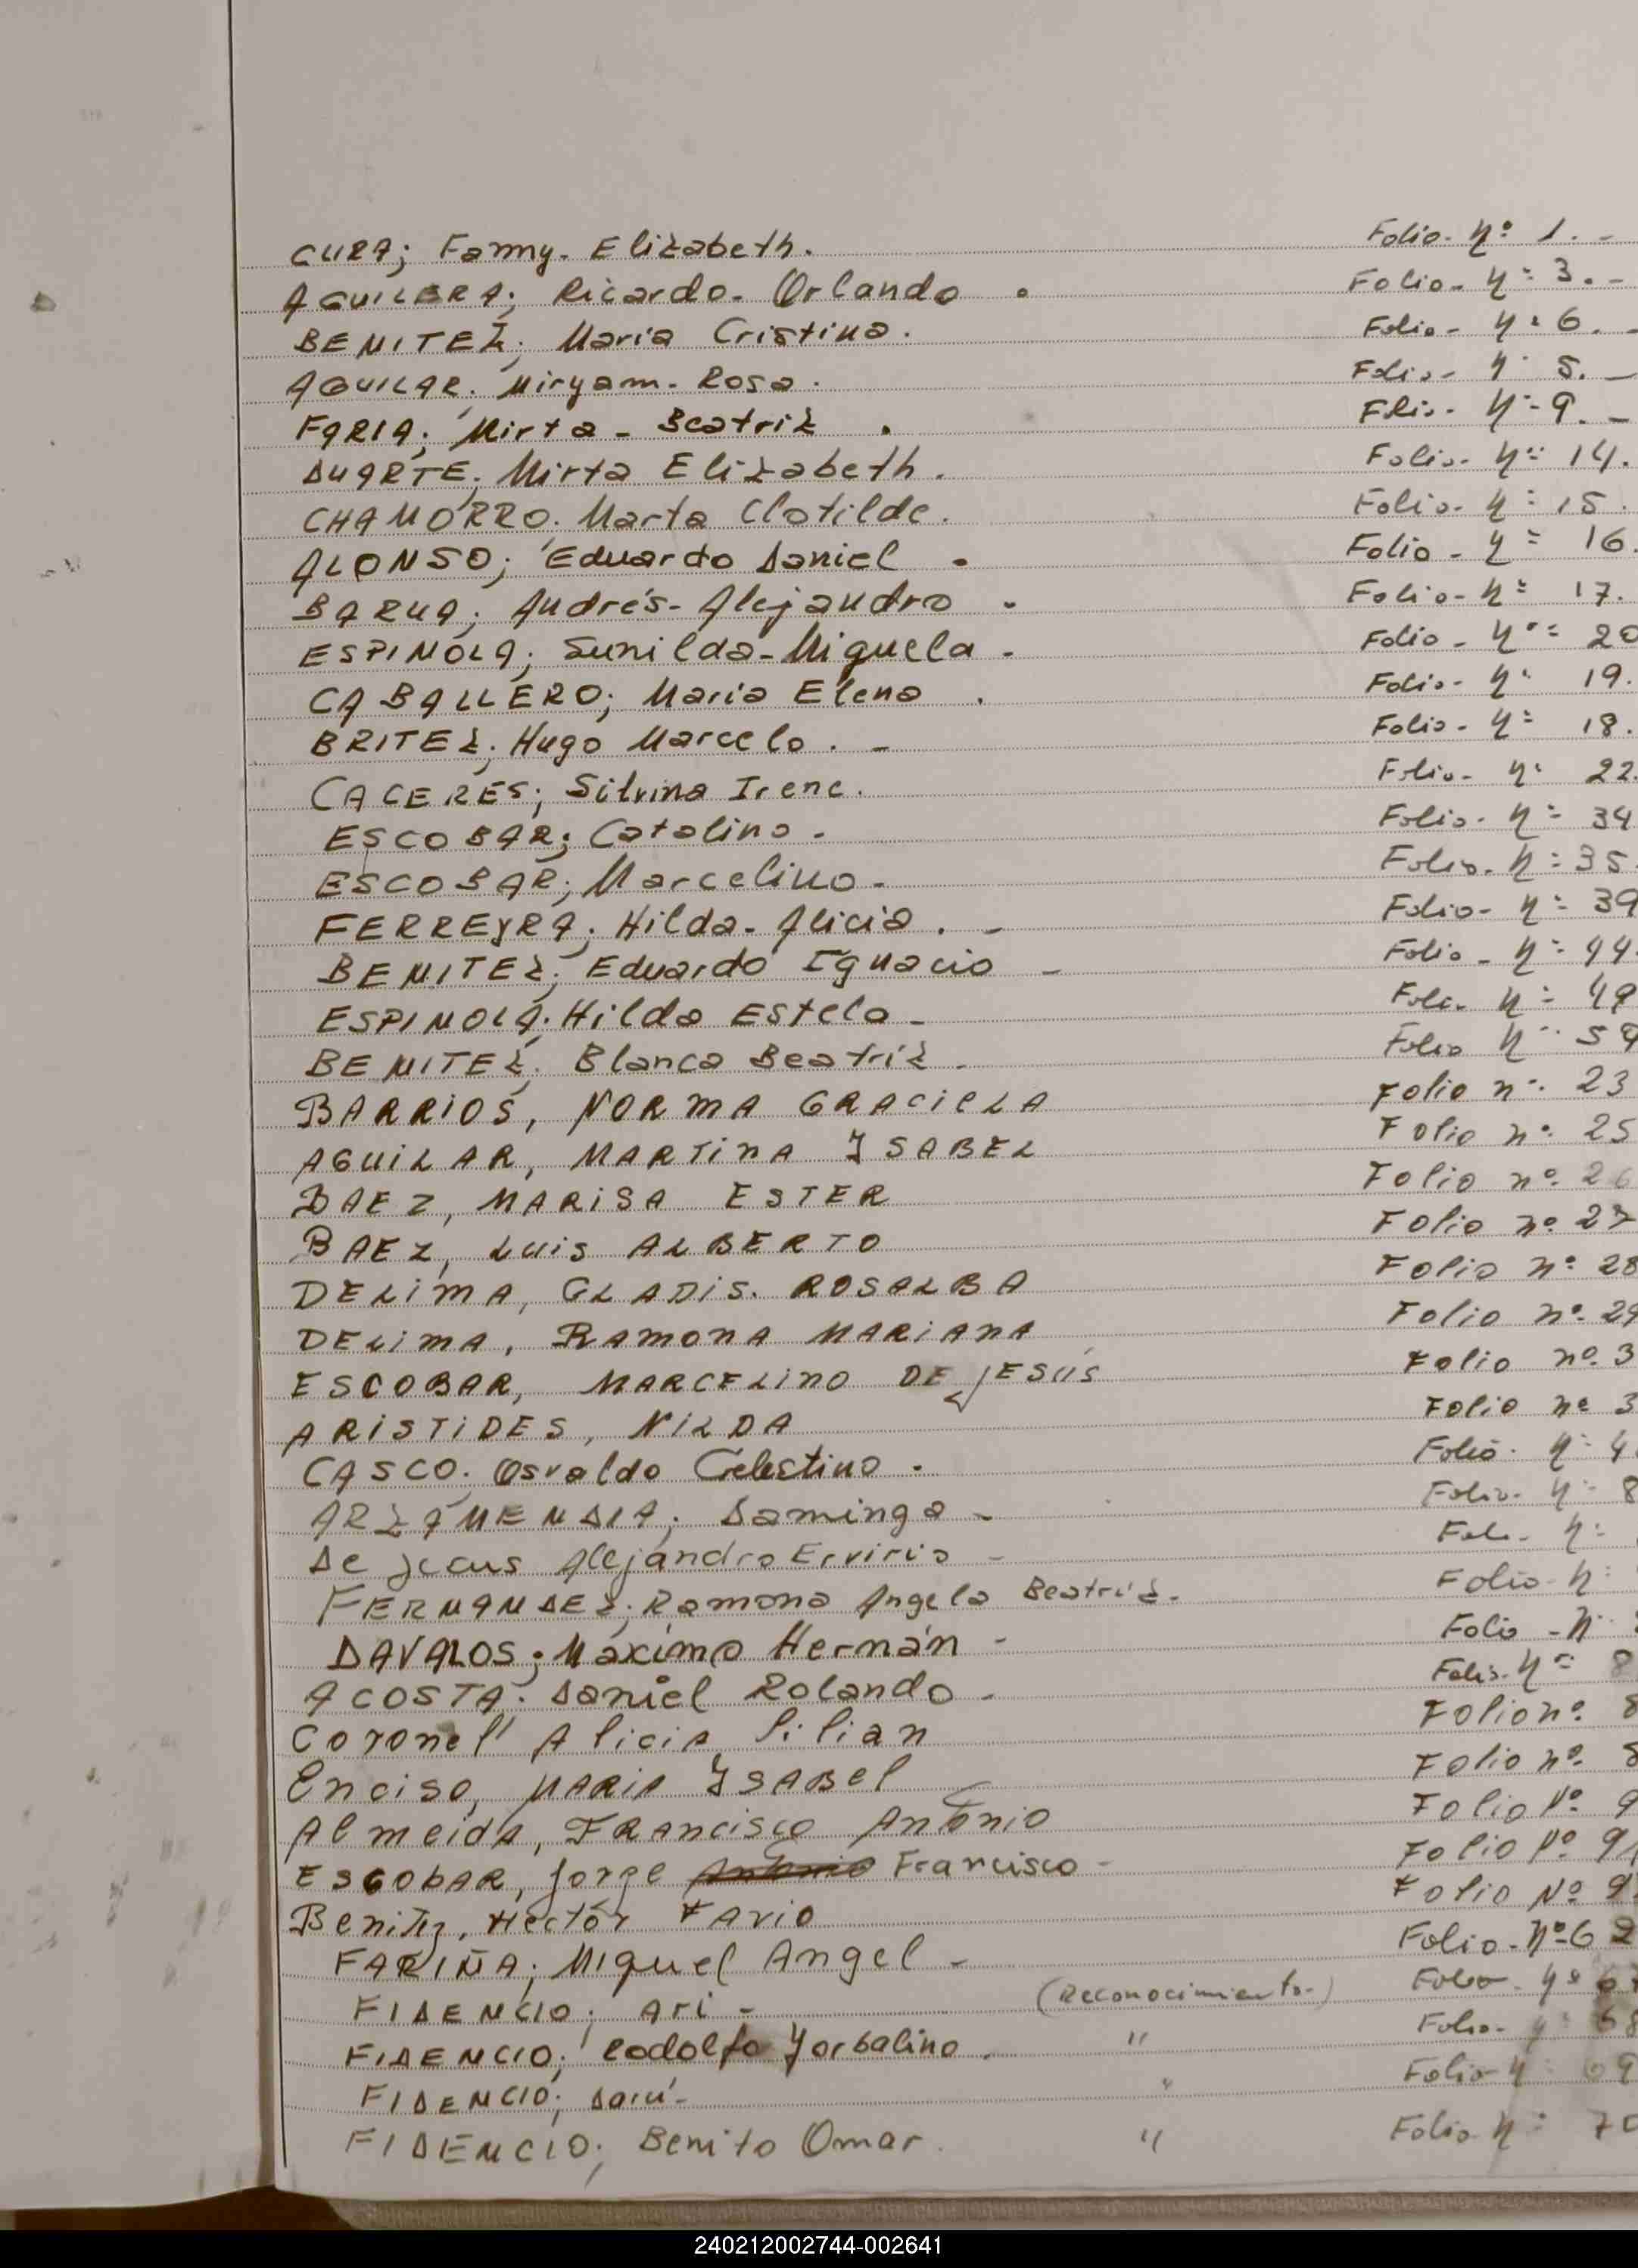 CURA; Fanny. Elizabeth. Folio. nº 1. -
AGUILERA; Ricardo. Orlando . Folio - nº 3. -
BENITEZ; Maria Cristina. Folio - nº 6. -
AGUILAR; Miryam. Rosa. Folio - nº 5. -
FARIA; Mirta - Beatriz . Folio - nº 9. -
DUARTE; Mirta Elizabeth. Folio - nº 14.
CHAMORRO; Marta Clotilde. Folio - nº 15.
ALONSO; Eduardo Daniel . Folio - nº 16.
BARUA; Andrés - Alejandro . Folio - nº 17.
ESPINOLA; Sunilda - Miguela - Folio - nº 20
CABALLERO; Maria Elena . Folio - nº 19.
BRITEZ; Hugo Marcelo. - Folio - nº 18.
CACERES; Silvina Irene. Folio - nº 22.
ESCOBAR; Catalino - Folio - nº 34
ESCOBAR; Marcelino - Folio - nº 35.
FERREYRA; Hilda - Alicia. - Folio - nº 39
BENITEZ; Eduardo Ignacio - Folio - nº 44.
ESPINOLA; Hilda Estela - Folio nº 49
BENITEZ; Blanca Beatriz - Folio nº 59
BARRIOS, NORMA GRACIELA Folio nº 23
AGUILAR, MARTINA YSABEL Folio nº 25
BAEZ, MARISA ESTER Folio nº 26
BAEZ, LUIS ALBERTO Folio nº 27
DELIMA, GLADIS. ROSALBA Folio nº 28
DELIMA, RAMONA MARIANA Folio nº 29
ESCOBAR, MARCELINO DE JESÚS Folio nº 3
ARISTIDES, NILDA Folio nº 3
CASCO; Osvaldo Celestino . Folio - nº 4
ARZAMENDIA; Dominga - Folio - nº 8
De Jesus Alejandro - Folio - nº
FERNANDEZ; Ramona Angela Beatriz. Folio - nº
DAVALOS; Máximo Hernán - Folio - nº
ACOSTA; Daniel Rolando - Folio - nº 8
Coronel Alicia Lilian Folio nº 8
Enciso, MARIA YSABEL Folio nº 8
Almeida, FRANCISCO Antonio Folio Nº 9
ESCOBAR, Jorge Antonio Francisco - Folio Nº 91
Benitez, Hector FAVIO Folio Nº 9
FARIÑA; Miguel Angel - Folio - nº 62
FIDENCIO; Ari - (Reconocimiento-) Folio - nº 67
FIDENCIO; Rodolfo Yorbalino. " Folio - nº 68
FIDENCIO; - " Folio - nº 69
FIDENCIO; Benito Omar. " Folio nº 70
240212002744-002641